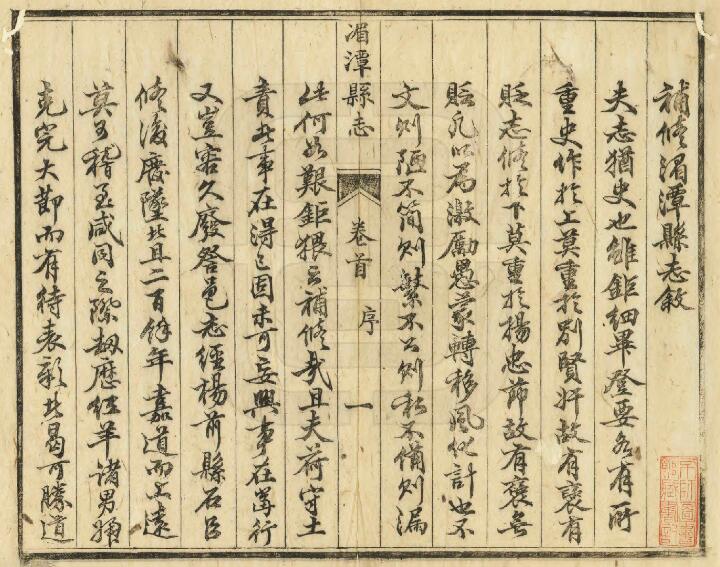 補修湄潭縣志敘
夫志猶史也雖鉅細畢登要各有所
重史作於上莫重於別賢奸故有褒有
貶志修於下莫重於揚忠節故有褒無
貶凡以為激勵愚蒙轉移風俗計也不
文則陋不簡則繁不公則私不備則漏
此何如艱鉅猥云補修哉且夫荷守土
責此事在得已固未可妄興事在當行
又豈容久廢茲邑志經楊前縣石臣
修後廢墜此且二百餘年嘉道而上遠
莫可稽至咸同之際劫歷紅羊諸男婦
克完大節而有待表彰此曷可勝道
湄潭縣志
卷首
序
一